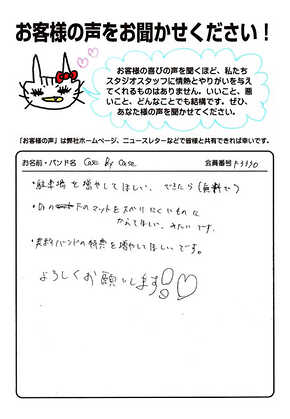 お客様の声をお聞かせください！
お客様の喜びの声を聞くほど、私たち
スタジオスタッフに情熱とやりがいを与え
てくれるものはありません。いいこと、悪
いこと、どんなことでも結構です。ぜひ、
あなた様の声を聞かせてください。
「お客様の声」は弊社ホームページ、ニュースレターなどで皆様と共有できれば幸いです。
お名前・バンド名 Case By Case 会員番号
・駐車場を増やしてほしい。できたら(無料で)
・Drの下のマットをスベリにくいものに
かえてほしい。みたいです。
・契約バンドの特典を増やしてほしいです。
よろしくお願いします!!